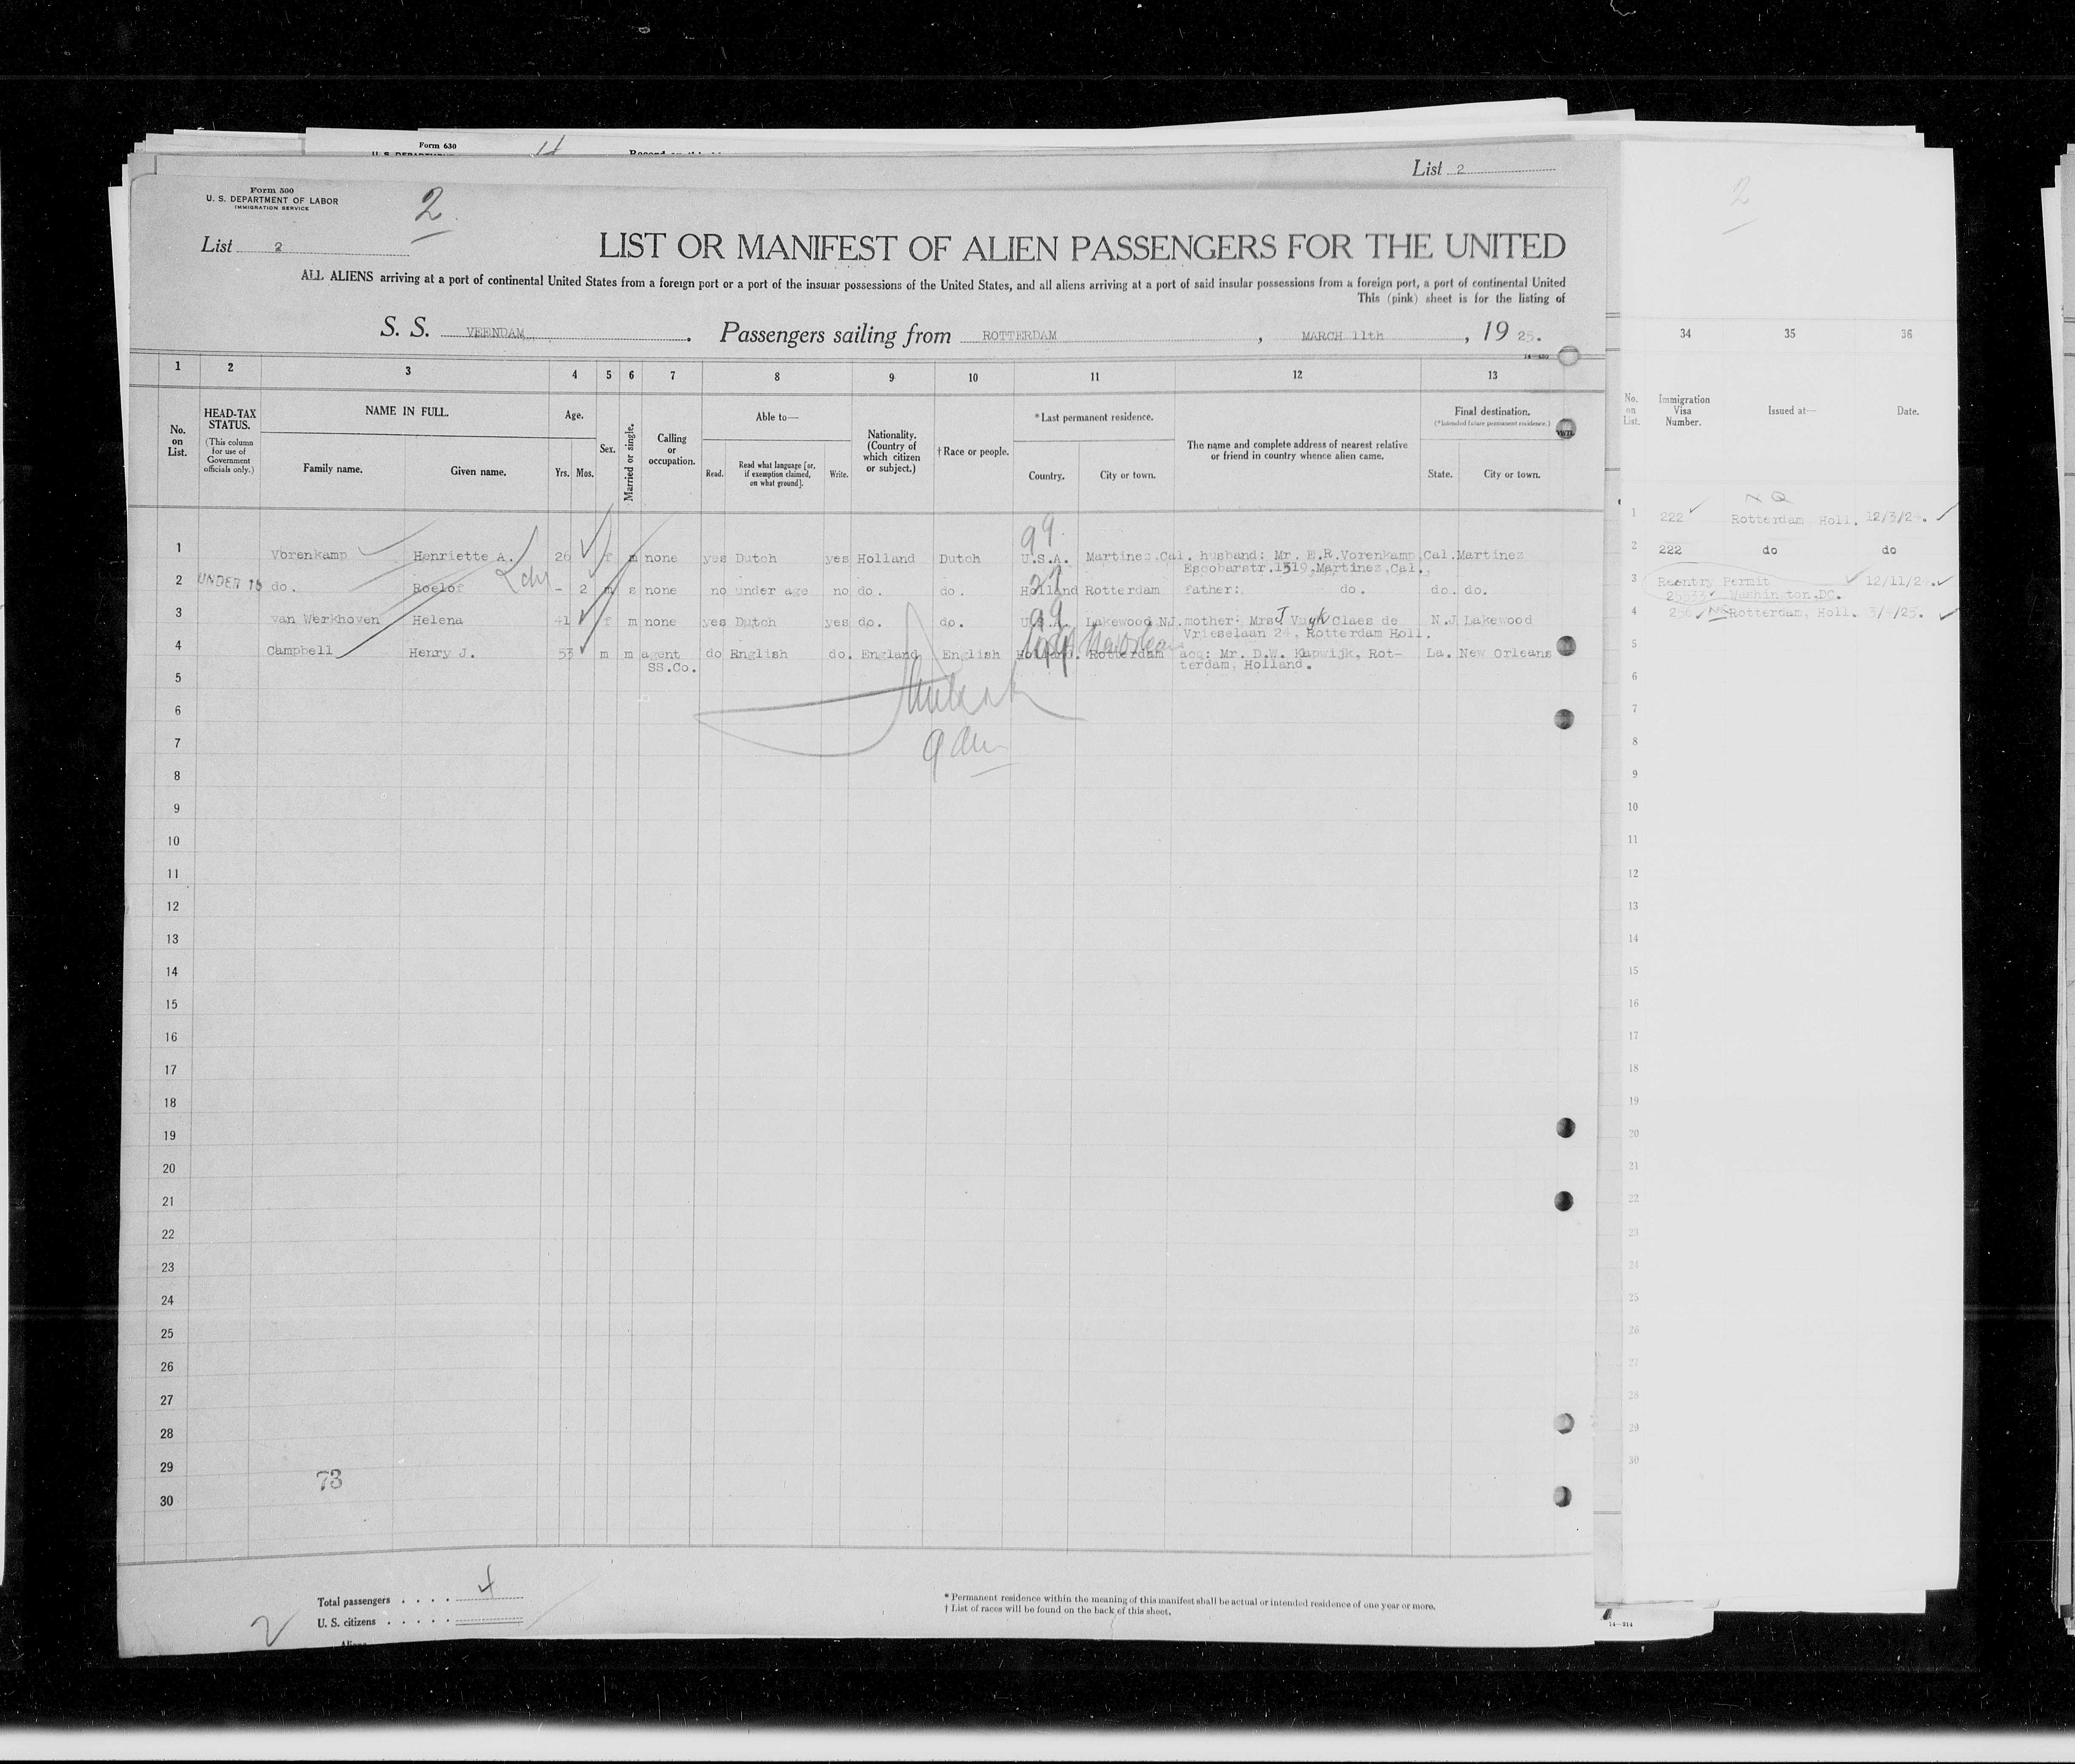 Form 630
List 2
Form 500
U. S. DEPARTMENT OF LABOR
IMMIGRATION SERVICE
2
List 2
LIST OR MANIFEST OF ALIEN PASSENGERS FOR THE UNITED
ALL ALIENS arriving at a port of continental United States from a foreign port or a port of the insular possessions of the United States, and all aliens arriving at a port of said insular possessions from a foreign port, a port of continental United
This (pink) sheet is for the listing of
S. S. VEENDAM. Passengers sailing from ROTTERDAM, MARCH 11th, 19 25.
1 2 3 4 5 6 7 8 9 10 11 12 13
No. on List.
HEAD-TAX STATUS.
(This column for use of Government officials only.)
NAME IN FULL.
Family name. Given name.
Age.
Yrs. Mos.
Sex.
Married or single.
Calling or occupation.
Able to—
Read. Read what language [or, if exemption claimed, on what ground]. Write.
Nationality. (Country of which citizen or subject.)
† Race or people.
* Last permanent residence.
Country. City or town.
The name and complete address of nearest relative or friend in country whence alien came.
Final destination.
(* Intended future permanent residence.)
State. City or town.
99
1 Vorenkamp Henriette A. 26 f m none yes Dutch yes Holland Dutch U.S.A. Martinez.Cal. husband: Mr. E.R.Vorenkamp, Cal. Martinez
Escobarstr.1319,Martinez,Cal.
2 UNDER 16 do. Roelof - 2 m s none no under age no do. do. Holland Rotterdam father: do. do. do.
99
3 van Werkhoven Helena 41 f m none yes Dutch yes do. do. U.S.A. Lakewood N.J. mother: Mrs J Claes de N.J. Lakewood
Vrieselaan 24, Rotterdam Holl.
4 Campbell Henry J. 53 m m agent do English do. England English Holland. Rotterdam acq: Mr. D.W. Kapwijk, Rot- La. New Orleans
SS.Co. terdam, Holland.
5
6
7
8
9
10
11
12
13
14
15
16
17
18
19
20
21
22
23
24
25
26
27
28
29
30
73
Total passengers . . . . 4
U. S. citizens . . . . .
2
* Permanent residence within the meaning of this manifest shall be actual or intended residence of one year or more.
† List of races will be found on the back of this sheet.
14—314
2
34 35 36
No. on List.
Immigration Visa Number.
Issued at—
Date.
N Q
1 222 Rotterdam Holl. 12/3/24.
2 222 do do
3 Reentry Permit 12/11/24.
Washington.DC.
4 256 Rotterdam, Holl. 3/4/25.
5
6
7
8
9
10
11
12
13
14
15
16
17
18
19
20
21
22
23
24
25
26
27
28
29
30